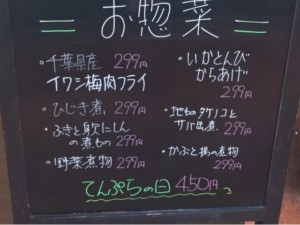 お惣菜
・千葉県産 299円
イワシ梅肉フライ
・ひじき煮 299円
・ふきと身欠にしん
の煮もの 299円
・野菜煮物 299円
・いかとんび
からあげ
299円
・地もの タケノコと
サバ缶煮 299円
・かぶと揚の煮物
299円
てんぷらの日 450円